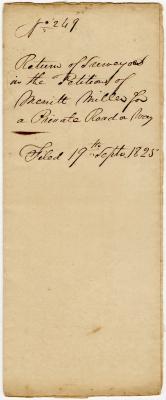 No. 249
Return of Surveyors
in the Petition of
Merritt Miller for
a Private Road or Way
Filed 19th Septr. 1825